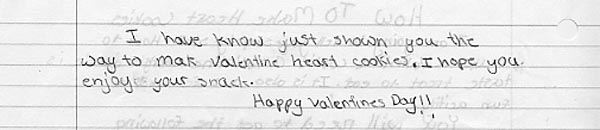 I have know just shown you the
way to mak valentine heart cookies. I hope you
enjoy your snack.
Happy valentines Day!!